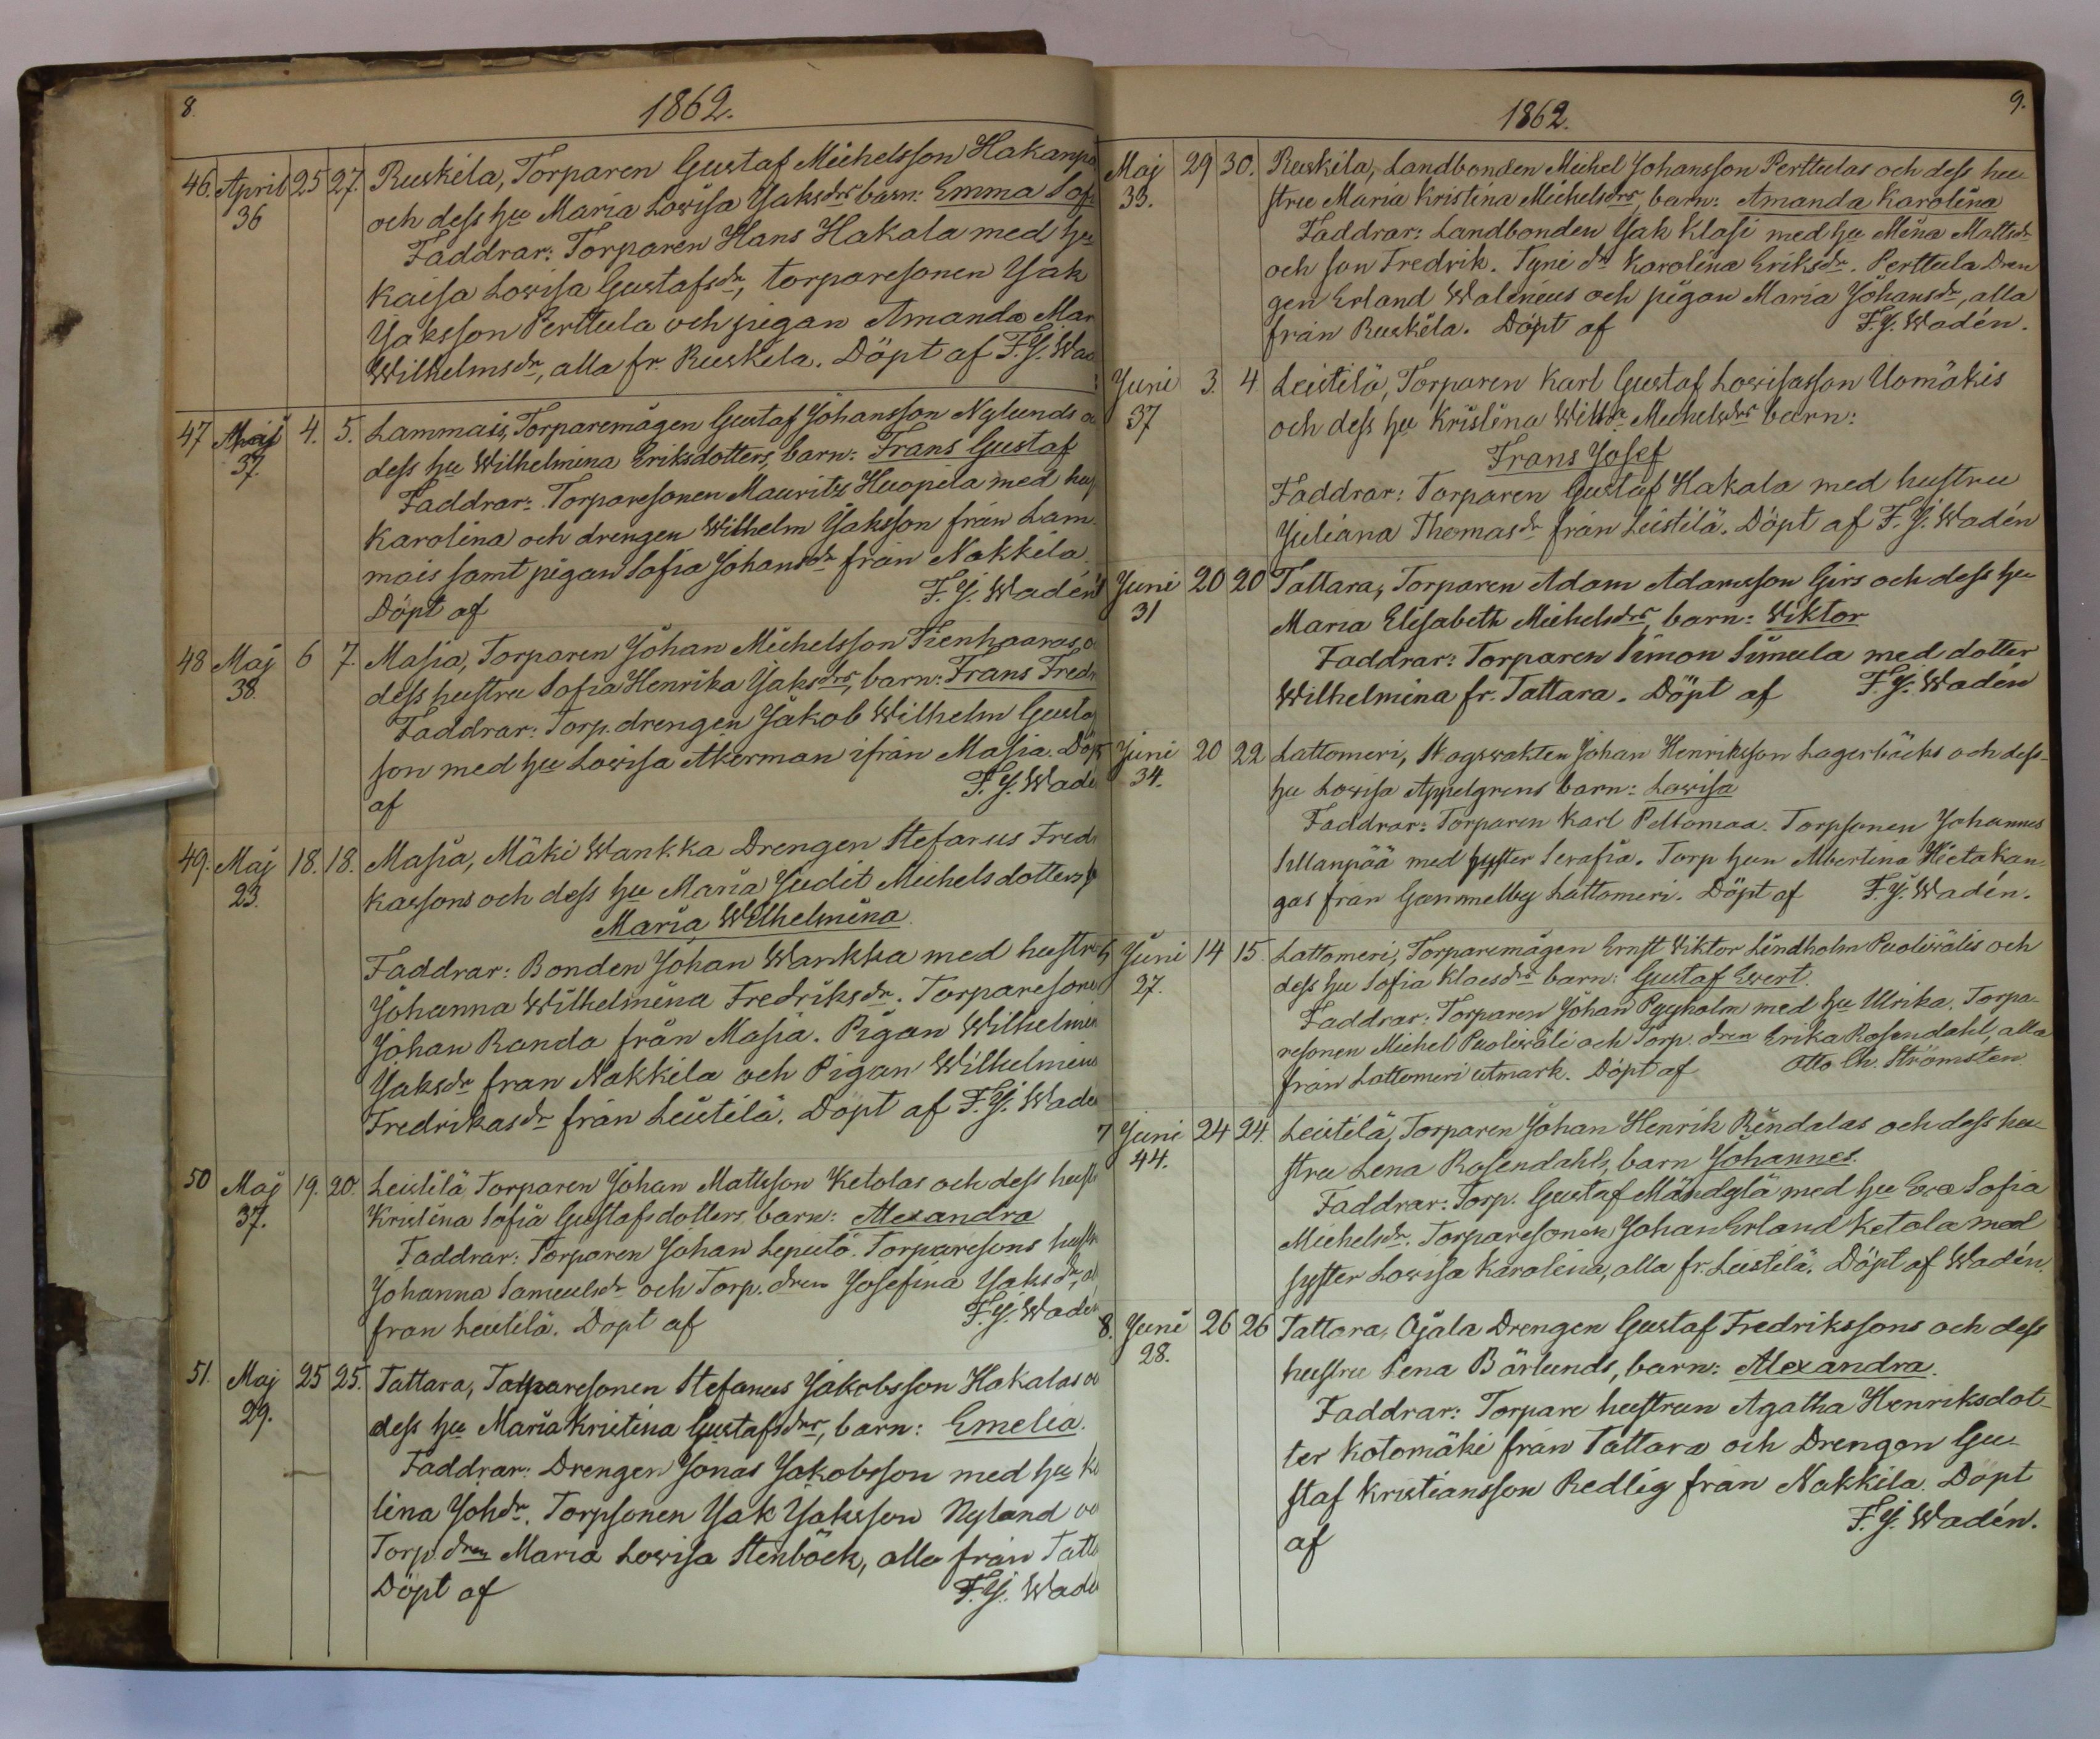 8.
1862.
46. April 25 27. Ruskila, Torparen Gustaf Michelsson Hakanpä
36 och dess hu Maria Lovisa Jaksdrs barn: Emma Sof
Faddrar: Torparen Hans Hakala med hu
Kaisa Lovisa Gustafsdr, torparesonen Jak
Jaksson Perttula och pigan Amanda Mar
Wilhelmsdr, alla fr. Ruskila. Döpt af F. J. Wad
47 Maj 4. 5. Lammais, Torparemågen Gustaf Johansson Nylunds o
37. dess hu Wilhelmina Eriksdotters, barn: Frans Gustaf
Faddrar: Torparesonen Mauritz Huopila med hus
Karolina och drengen Wilhelm Jaksson från Lam
mais samt pigan Sofia Johansdr från Nakkila.
Döpt af F. J. Wadén
48 Maj 6 7. Masia, Torparen Johan Michelsson Tienhaaras o
38. dess hustru Sofia Henrika Jaksdrs, barn: Frans Fredr
Faddrar: Torp. drengen Jakob Wilhelm Gustaf
son med hu Lovisa Åkerman ifrån Masia. Döpt
af F. J. Wadé
49. Maj 18. 18. Masia, Mäki Wankka Drengen Stefanus Fredr
23. kassons och dess hu Maria Judit Michelsdotters
Maria Wilhelmina.
Faddrar: Bonden Johan Wankka med hustr
Johanna Wilhelmina Fredriksdr. Torpareson
Johan Randa från Masia. Pigan Wilhelmin
Jaksdr från Nakkila och Pigan Wilhelmin
Fredrikasdr från Leistilä. Döpt af F. J. Wadé
50 Maj 19. 20. Leistilä Torparen Johan Mattsson Ketolas och dess hust
37. Kristina Sofia Gustafsdotters, barn: Alexandra
Faddrar: Torparen Johan Lepistö. Torparesons hustr
Johanna Samuelsdr och Torp. dren Josefina Jaksdr, al
från Leistilä. Döpt af F. J. Wadén
51. Maj 25 25. Tattara, Torparesonen Stefanus Jakobsson Hakalas oc
29. dess hu Maria Kristina Gustafsdrs, barn: Emelia.
Faddrar: Drengen Jonas Jakobsson med hu K
lina Johdr. Torpsonen Jak Jaksson Nyland oc
Torp. dren Maria Lovisa Stenbäck, alla från Tatt
Döpt af F. J. Wadé
9.
1862.
Maj 29 30. Ruskila, Landbonden Michel Johansson Perttulas och dess hu
33. stru Maria Kristina Michelsdrs, barn: Amanda Karolina
Faddrar: Landbonden Jak Klasi med hu Mina Mattsdr
och son Fredrik. Tyni dr Karolina Eriksdr. Perttula Dren
gen Erland Walenius och pigan Maria Johansdr, alla
från Ruskila. Döpt af F. J. Wadén.
Juni 3. 4. Leistilä, Torparen Karl Gustaf Lovisasson Uomäkis
37 och dess hu Kristina Willa Michelsdrs barn:
Frans Josef
Faddrar: Torparen Gustaf Hakala med hustru
Juliana Thomasdr från Leistilä. Döpt af F. J. Wadén
Juni 20 20 Tattara, Torparen Adam Adamsson Girs och dess hu
31 Maria Elisabeth Michelsdrs, barn: Wiktor
Faddrar: Torparen Simon Simula med dotter
Wilhelmina fr. Tattara. Döpt af F. J. Wadén
Juni 20 22 Lattomeri, Skogswakten Johan Henriksson Lagerbäcks och dess
34. hu Lovisa Appelgrens barn: Lovisa
Faddrar: Torparen Karl Peltomaa. Torpsonen Johannes
Sillanpää med syster Serafia. Torp hun Albertina Hietakan
gas från Gammelby Lattomeri. Döpt af F. J. Wadén.
Juni 14 15. Lattomeri, Torparemågen Ernst Wiktor Lindholm Puoliwälis och
27. dess hu Sofia Klaesdrs barn: Gustaf Evert.
Faddrar: Torparen Johan Pyyholm med hu Ulrika. Torpa-
resonen Michel Puoliwäli och Torp. dren Erika Rosendahl, alla
från Lattomeri utmark. Döpt af Otto Ch. Strömsten
7 Juni 24 24. Leistilä, Torparen Johan Henrik Rindalas och dess hu-
44. stru Lena Rosendahls, barn Johannes.
Faddrar: Torp. Gustaf Mändylä med hu Eva Sofia
Michelsdr. Torparesonen Johan Erland Ketola med
syster Lovisa Karolina, alla fr. Leistilä. Döpt af Wadén.
8. Juni 26 26 Tattara, Ojala Drengen Gustaf Fredrikssons och dess
28. hustru Lena Bärlunds, barn: Alexandra.
Faddrar: Torpare hustrun Agatha Henriksdot-
ter Kotomäki från Tattara och Drengen Gu-
staf Kristiansson Redlig från Nakkila. Döpt
af F. J. Wadén.